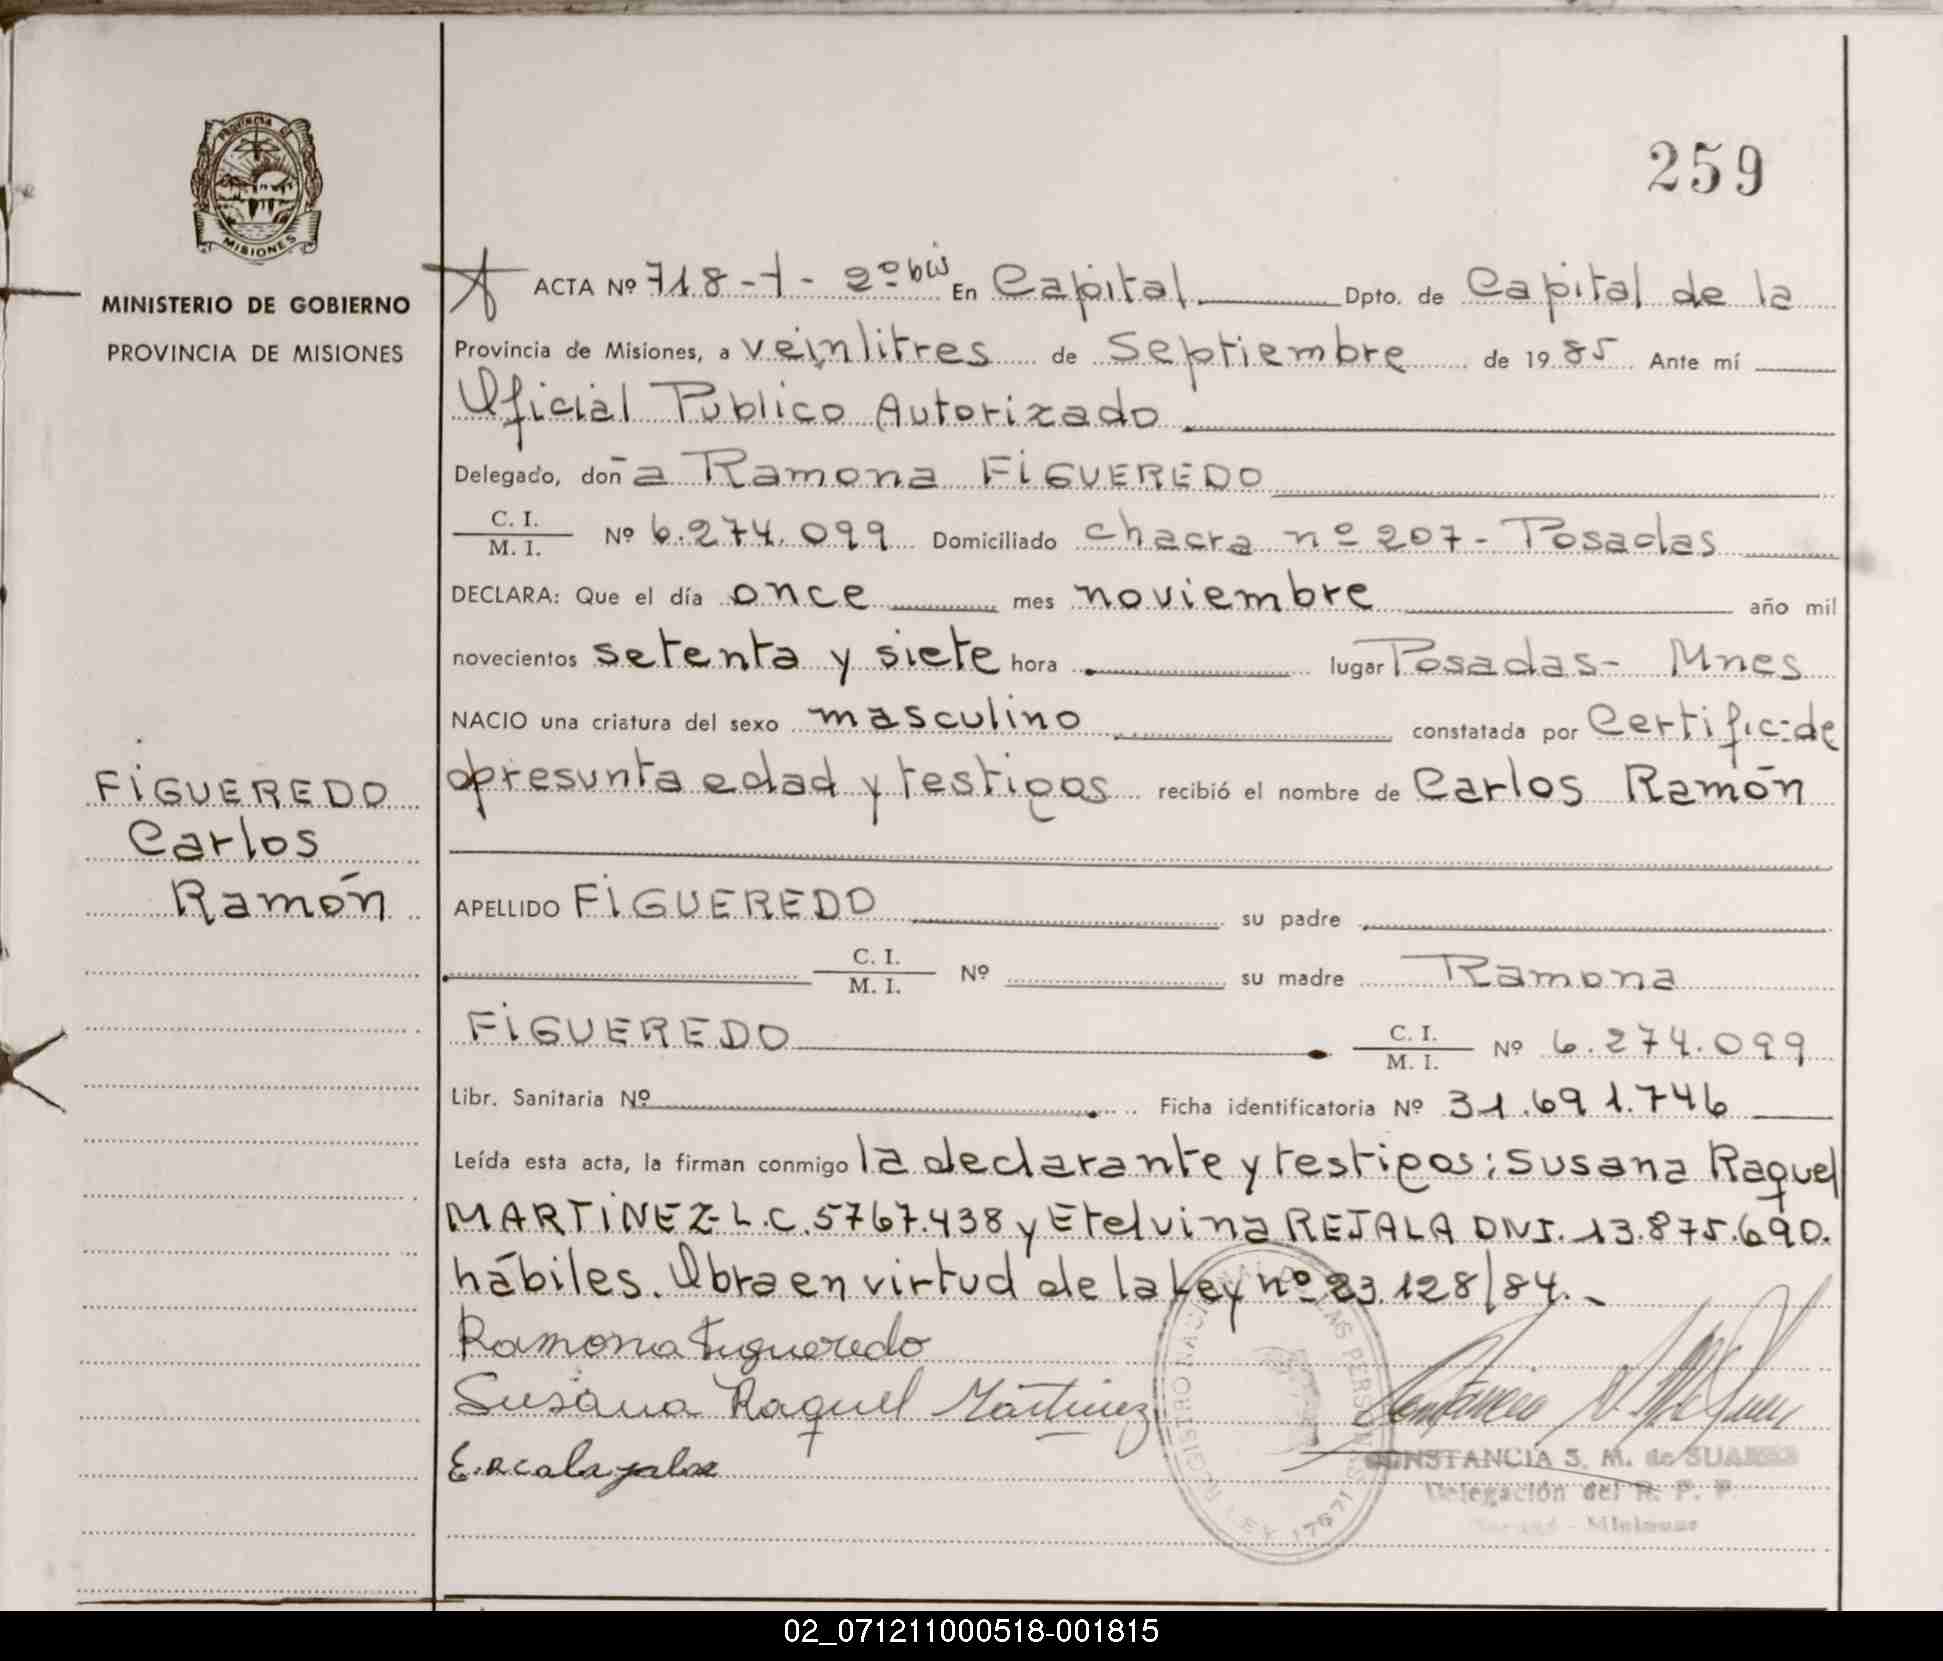 259
PROVINCIA DE
MISIONES
MINISTERIO DE GOBIERNO
PROVINCIA DE MISIONES
FIGUEREDO
Carlos
Ramón
ACTA Nº 718-1- 2º bis En Capital Dpto. de Capital de la
Provincia de Misiones, a veintitres de Septiembre de 1985 Ante mí
Oficial Publico Autorizado
Delegado, doña Ramona FIGUEREDO
C. I. / M. I. Nº 6.274.099 Domiciliado chacra nº 207- Posadas
DECLARA: Que el día once mes noviembre año mil
novecientos setenta y siete hora lugar Posadas- Mnes
NACIO una criatura del sexo masculino constatada por Certific: de
presunta edad y testigos recibió el nombre de Carlos Ramón
APELLIDO FIGUEREDO su padre
C. I. / M. I. Nº su madre Ramona
FIGUEREDO C. I. / M. I. Nº 6.274.099
Libr. Sanitaria Nº Ficha identificatoria Nº 31.691.746
Leída esta acta, la firman conmigo la declarante y testigos: Susana Raquel
MARTINEZ- L.C. 5767.438 y Etelvina REJALA DNI. 13.875.690.
hábiles. Obra en virtud de la Ley nº 23.128/84.-
Ramona Figueredo
Susana Raquel Martinez
REGISTRO NACIONAL DE LAS PERSONAS
LEY 17671
CONSTANCIA S. M. de SUAREZ
Delegación del R. P. P.
Misiones
02_071211000518-001815